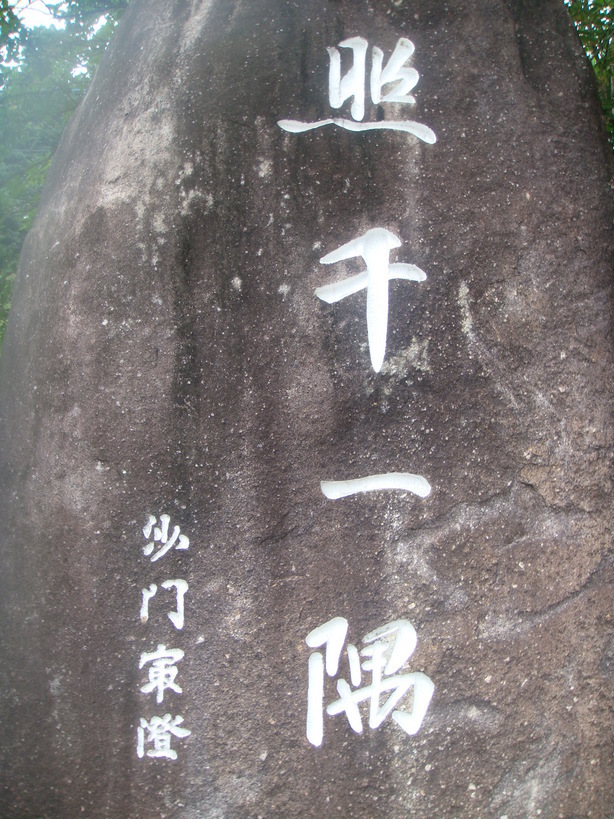 照千一隅
沙门寂澄